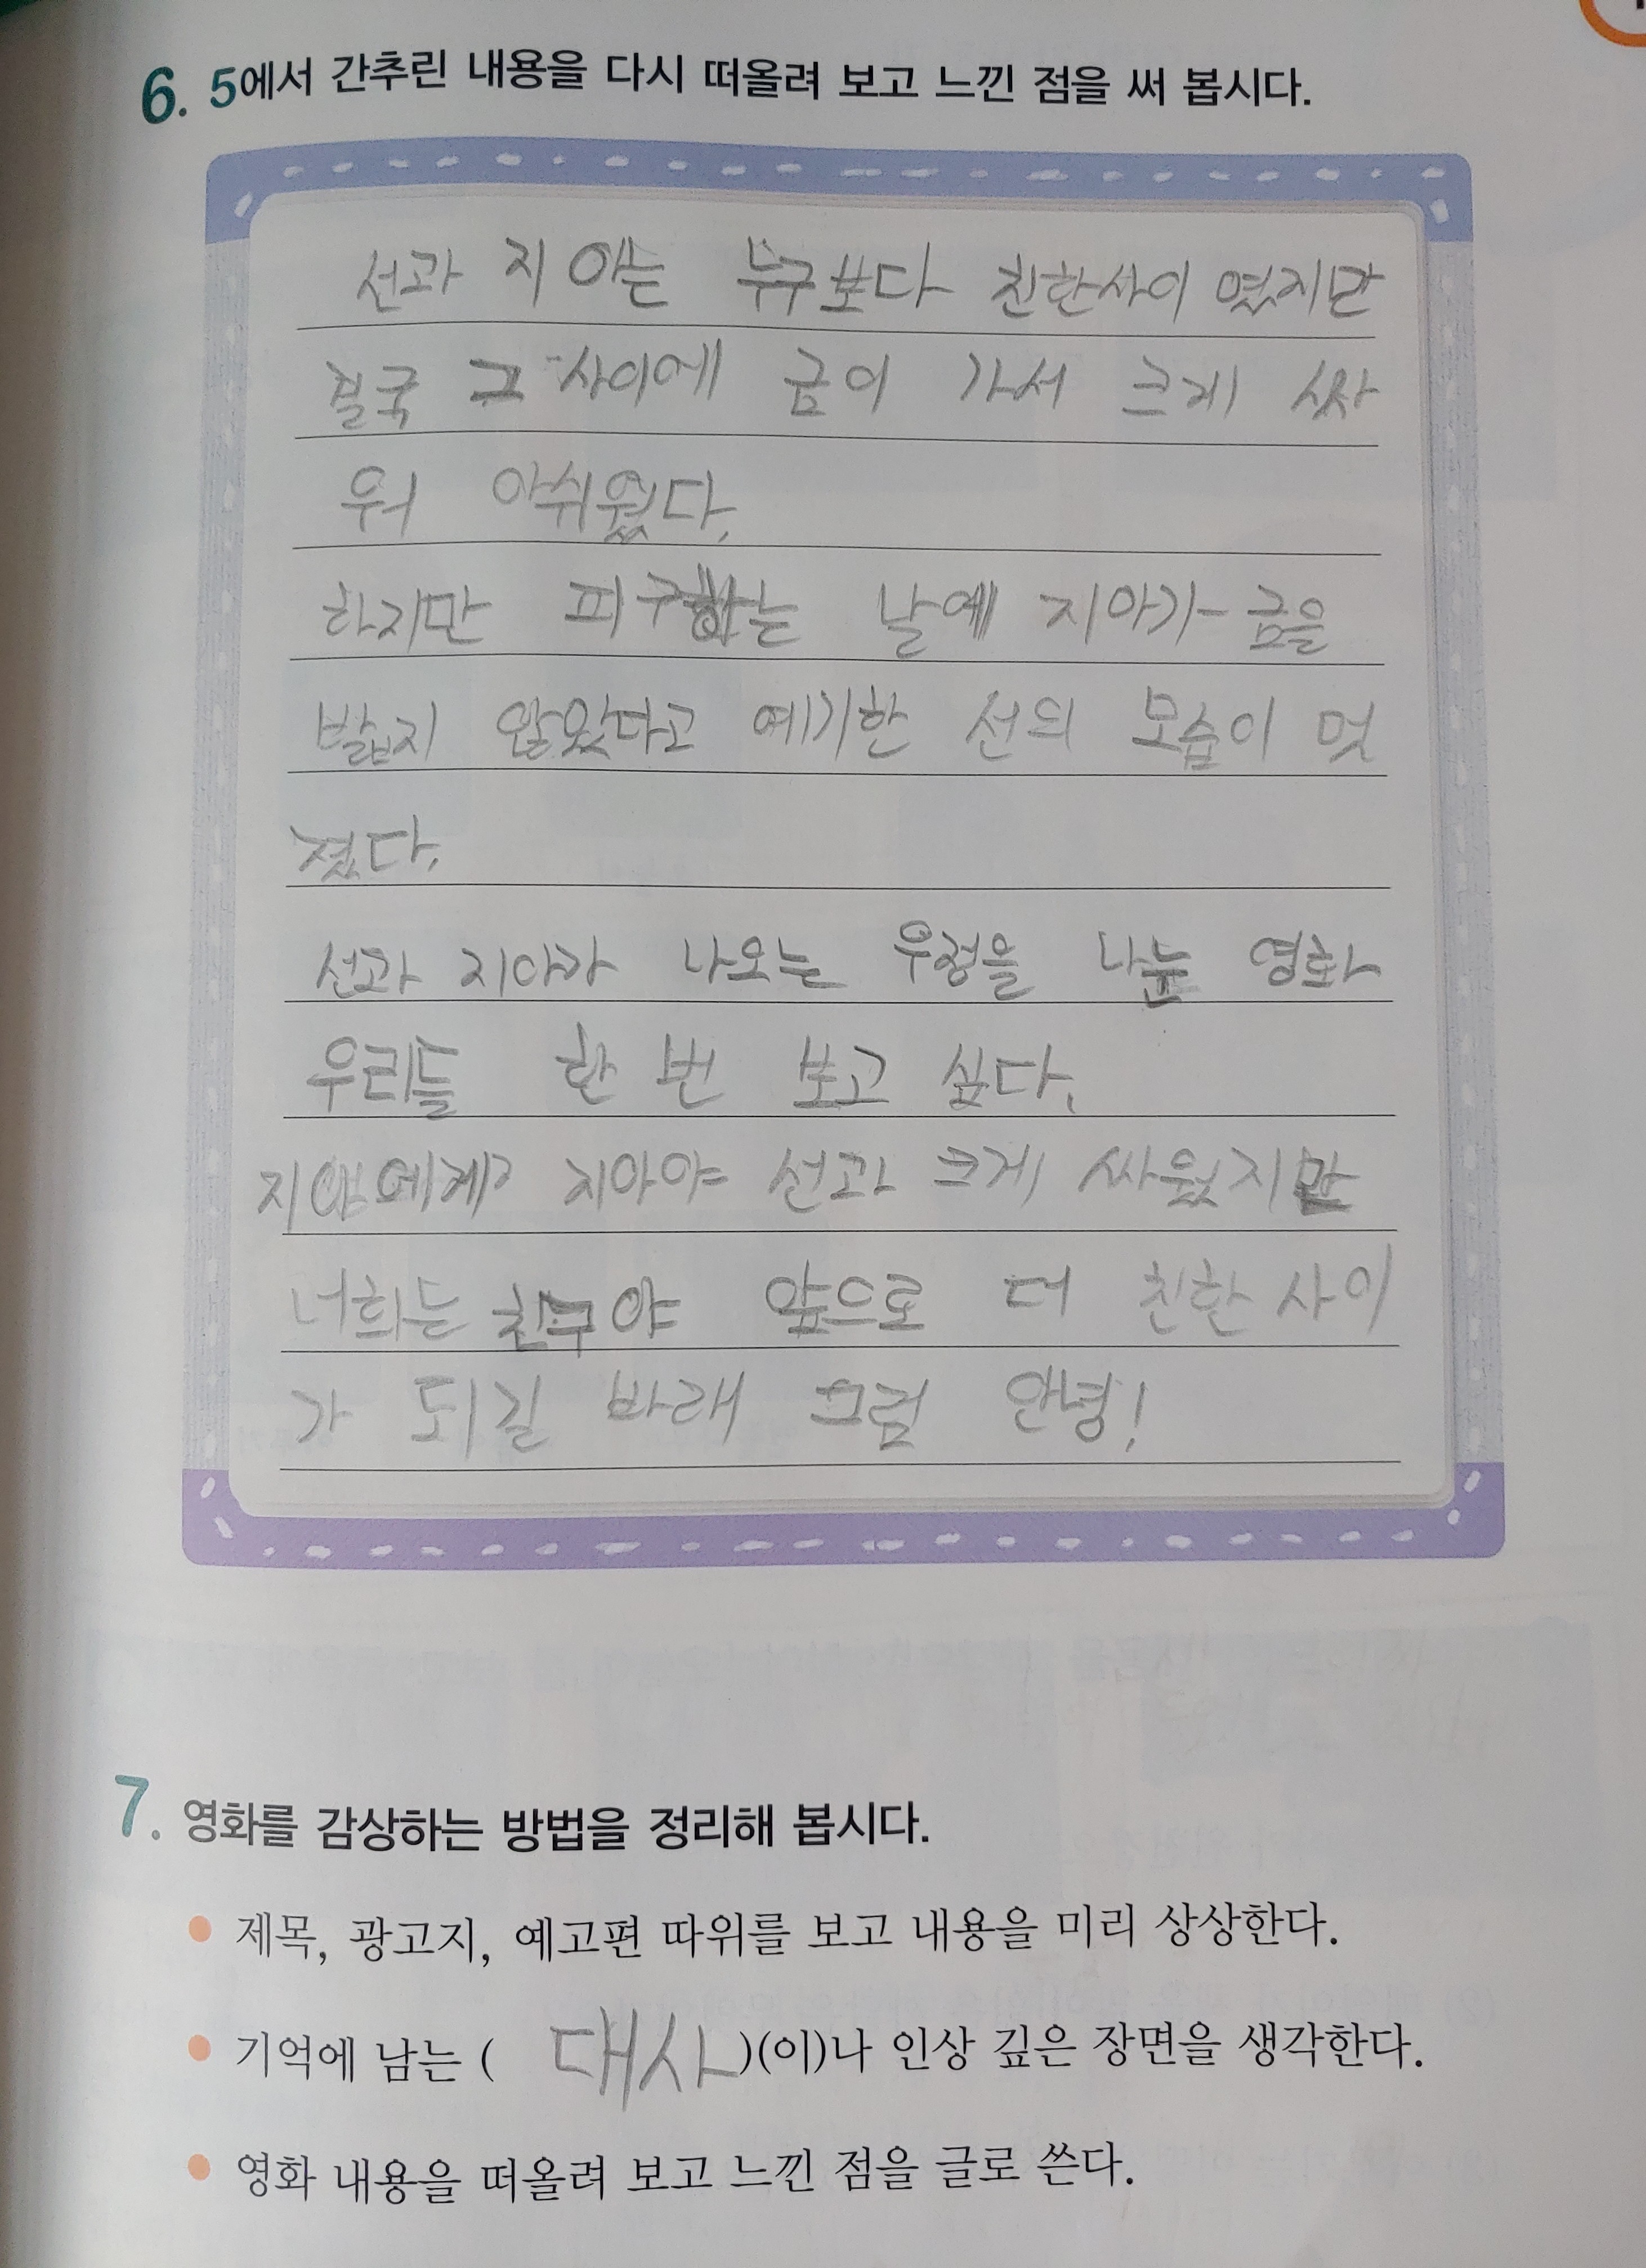 6. 5에서 간추린 내용을 다시 떠올려 보고 느낀 점을 써 봅시다.
선과 지아는 누구보다 친한사이 였지만
결국 그 사이에 금이 가서 크게 싸
워 아쉬웠다.
하지만 피구하는 날에 지아가 금을
발습지 않았다고 예기한 선의 모습이 멋
졌다.
선과 지아가 나오는 우정을 나눈 영화
우리들 한 번 보고 싶다.
지아에게? 지아야 선과 크게 싸웠지만
너희는 친구야 앞으로 더 친한 사이
가 되길 바래 그럼 안녕!
7. 영화를 감상하는 방법을 정리해 봅시다.
제목, 광고지, 예고편 따위를 보고 내용을 미리 상상한다.
기억에 남는 ( 대사 )(이)나 인상 깊은 장면을 생각한다.
영화 내용을 떠올려 보고 느낀 점을 글로 쓴다.